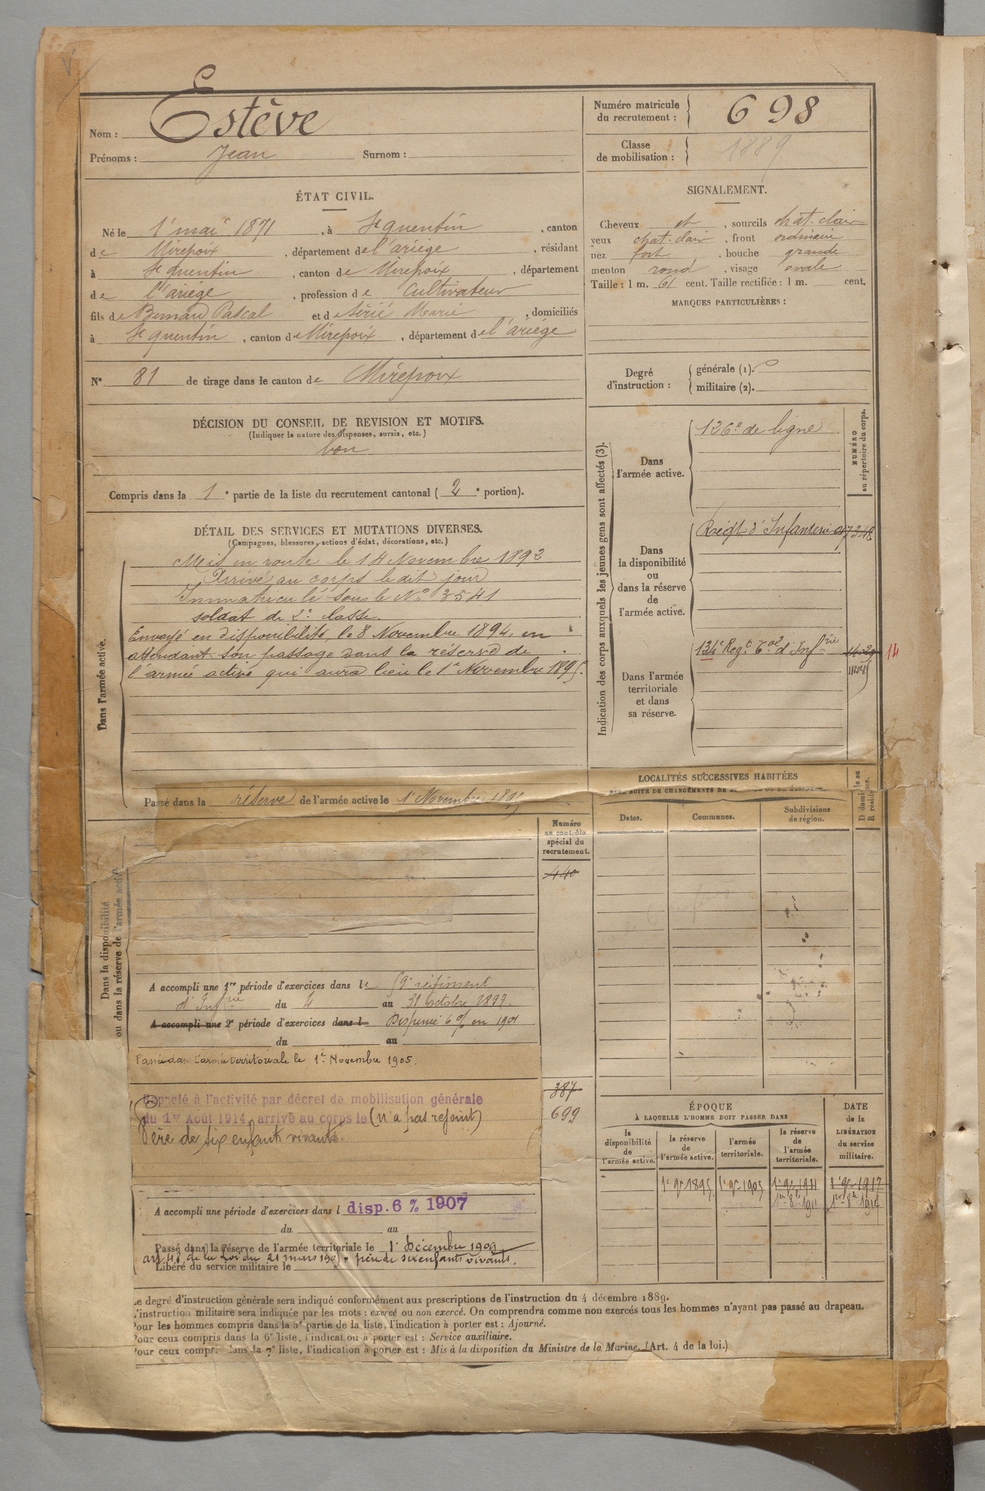 Nom : Estève
Prénoms : Jean Surnom :
Numéro matricule
du recrutement : 698
Classe
de mobilisation : 1889
ÉTAT CIVIL.
Né le 1er mai 1871, à St quentin, canton
de Mirepoix, département de l'ariège, résidant
à St quentin, canton de Mirepoix, département
de l'ariège, profession de Cultivateur
fils de Bernard Pascal et de Marie, domiciliés
à St quentin, canton de Mirepoix, département de l'ariège
N° 81 de tirage dans le canton de Mirepoix
SIGNALEMENT.
Cheveux et, sourcils chat. clair
yeux chat. clair, front ordinaire
nez fort, bouche grande
menton rond, visage ovale
Taille : 1 m. 61 cent. Taille rectifiée : 1 m. cent.
MARQUES PARTICULIÈRES :
Degré
d'instruction :
générale (1).
militaire (2).
DÉCISION DU CONSEIL DE REVISION ET MOTIFS.
(Indiquer la nature des dispenses, sursis, etc.)
bon
Compris dans la 1e partie de la liste du recrutement cantonal (2e portion).
DÉTAIL DES SERVICES ET MUTATIONS DIVERSES.
(Campagnes, blessures, actions d'éclat, décorations, etc.)
Dans l'armée active.
Mis en route le 14 Novembre 1892
Arrivé au corps le dit jour
Immatriculé sous le No 3541
soldat de 2e classe.
Envoyé en disponibilité le 8 Novembre 1894, en
attendant son passage dans la réserve de
l'armée active qui aura lieu le 1er Novembre 1895.
Passé dans la réserve de l'armée active le 1er Novembre 1895
Indication des corps auxquels les jeunes gens sont affectés (3).
NUMÉRO
au répertoire du corps.
Dans
l'armée active.
126e de ligne
Dans
la disponibilité
ou
dans la réserve
de
l'armée active.
Régt d'Infanterie
Dans l'armée
territoriale
et dans
sa réserve.
134e Regt Tal d'Infrie
14
LOCALITÉS SUCCESSIVES HABITÉES
Dates.
Communes.
Subdivisions
de région.
Numéro
au contrôle
spécial du
recrutement.
440
Dans la disponibilité
ou dans la réserve de l'armée active
A accompli une 1re période d'exercices dans le 59e régiment
d'Infrie du 4 au 31 octobre 1899.
A accompli une 2e période d'exercices dans l Dispensé 6 % en 1904
du au
Passé dans l'armée territoriale le 1er Novembre 1905
387
699
Rappelé à l'activité par décret de mobilisation générale
du 1er Août 1914, arrivé au corps le (n'a pas rejoint)
Père de six enfants vivants.
A accompli une période d'exercices dans l disp. 6 % 1907
du au
Passé dans la réserve de l'armée territoriale le 1er Décembre 1909
art 48 de la loi du 21 mars 1905, père de six enfants vivants.
Libéré du service militaire le
ÉPOQUE
À LAQUELLE L'HOMME DOIT PASSER DANS
la
disponibilité
de
l'armée active.
la réserve
de
l'armée active.
l'armée
territoriale.
la réserve
de
l'armée
territoriale.
DATE
de la
LIBÉRATION
du service
militaire.
1er 9bre 1895
1er 9bre 1905
1er 9bre 1911
1er 9bre 1917
de degré d'instruction générale sera indiqué conformément aux prescriptions de l'instruction du 4 décembre 1889.
L'instruction militaire sera indiquée par les mots : exercé ou non exercé. On comprendra comme non exercés tous les hommes n'ayant pas passé au drapeau.
Pour les hommes compris dans la 3e partie de la liste, l'indication à porter est : Ajourné.
Pour ceux compris dans la 6e liste, l'indication à porter est : Service auxiliaire.
Pour ceux compris dans la 7e liste, l'indication à porter est : Mis à la disposition du Ministre de la Marine. (Art. 4 de la loi.)